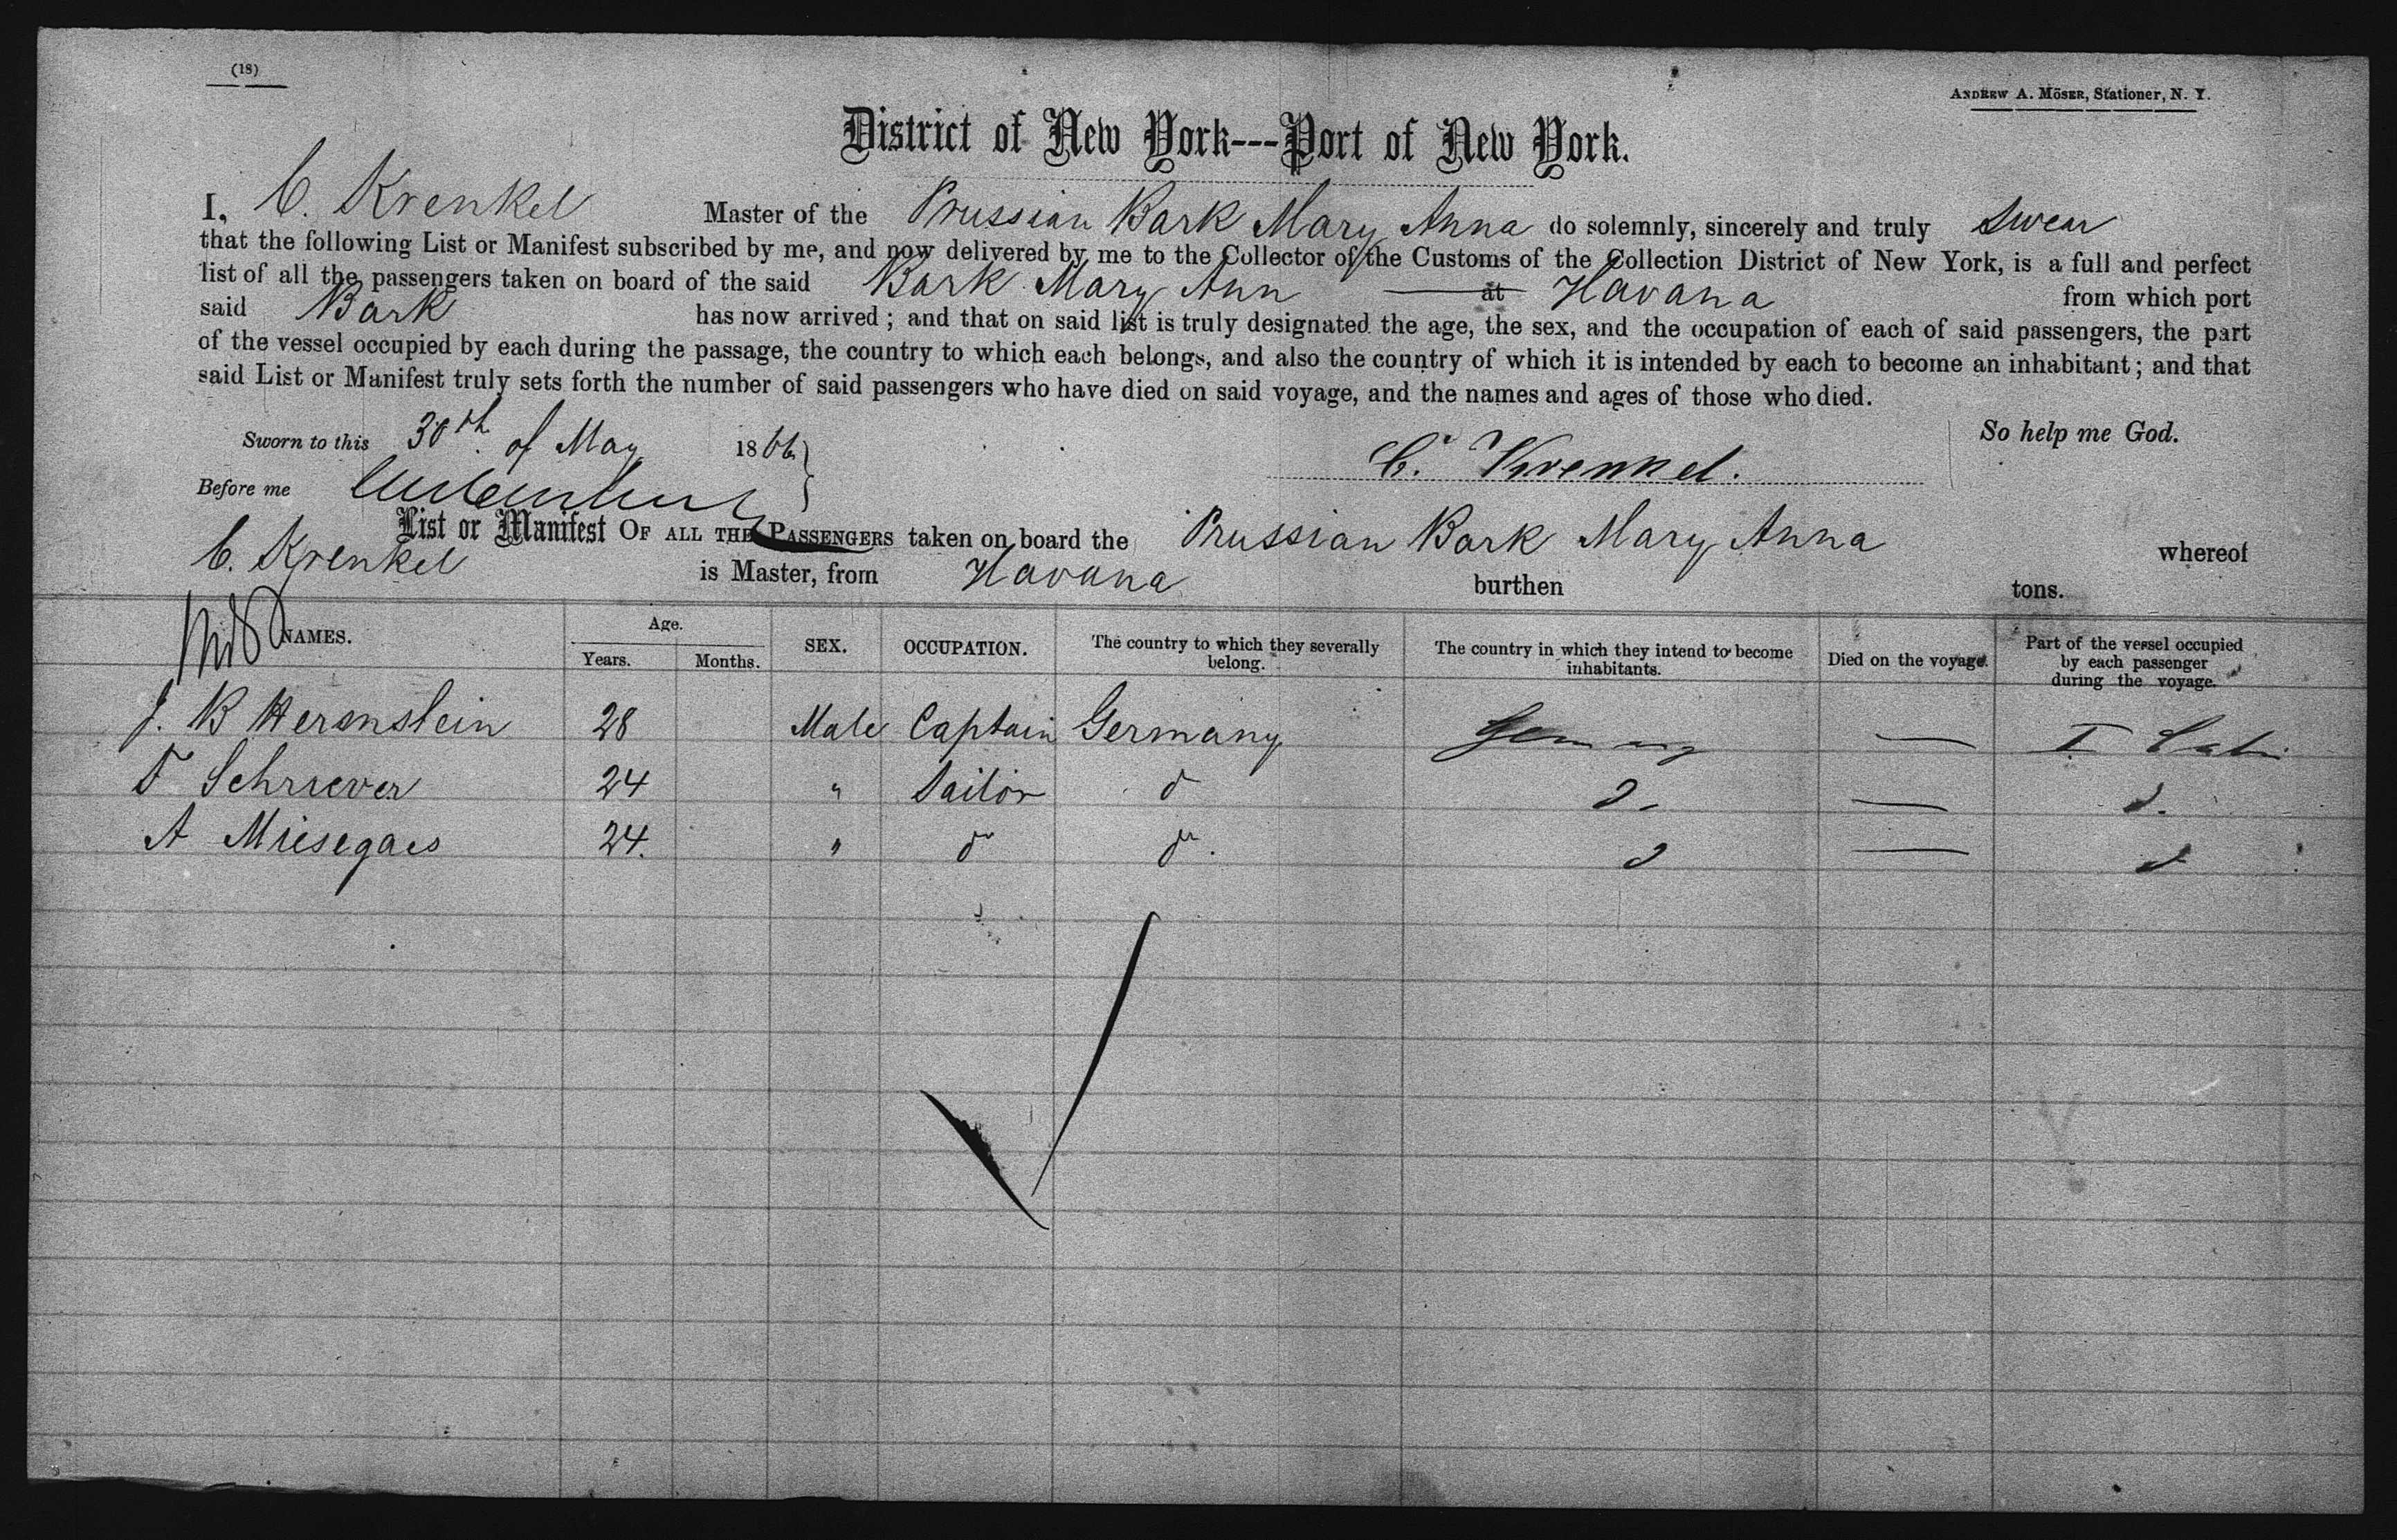 (18)
ANDREW A. MÖSER, Stationer, N. Y.
District of New York---Port of New York.
I, C. Krenkel Master of the Prussian Bark Mary Anna do solemnly, sincerely and truly swear
that the following List or Manifest subscribed by me, and now delivered by me to the Collector of the Customs of the Collection District of New York, is a full and perfect
list of all the passengers taken on board of the said Bark Mary Ann at Havana from which port
said Bark has now arrived; and that on said list is truly designated the age, the sex, and the occupation of each of said passengers, the part
of the vessel occupied by each during the passage, the country to which each belongs, and also the country of which it is intended by each to become an inhabitant; and that
said List or Manifest truly sets forth the number of said passengers who have died on said voyage, and the names and ages of those who died.
So help me God.
Sworn to this 30th of May 1866
C. Krenkel.
Before me
List or Manifest OF ALL THE PASSENGERS taken on board the Prussian Bark Mary Anna whereof
C. Krenkel is Master, from Havana burthen tons.
NAMES. Age. Years. Months. SEX. OCCUPATION. The country to which they severally belong. The country in which they intend to become inhabitants. Died on the voyage. Part of the vessel occupied by each passenger during the voyage.
J. B Herenstein 28 Male Captain Germany Germany — I Cabin
F Schriever 24 " Sailor do do — do.
A Miesegaes 24. " do do. do — do